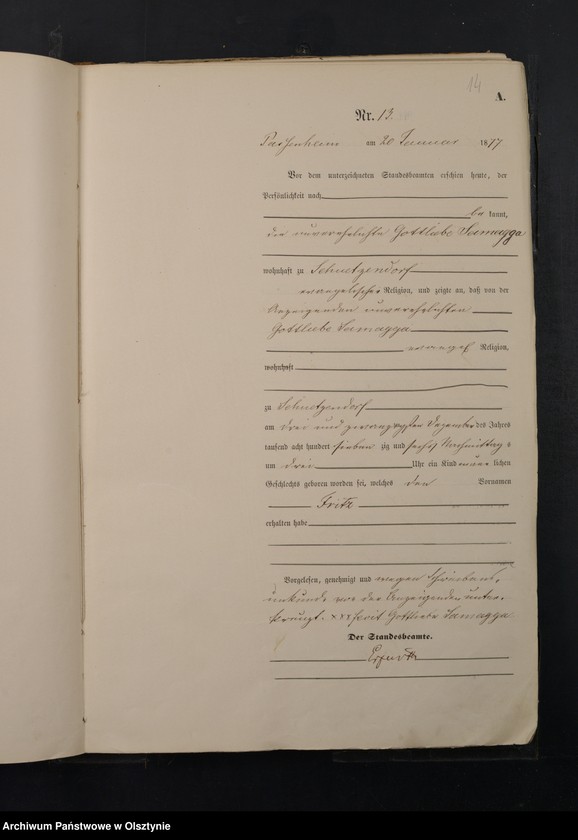 14
A.
Nr. 13.
Passenheim am 20 Januar 1877
Vor dem unterzeichneten Standesbeamten erschien heute, der
Persönlichkeit nach
be kannt,
die unverehelichte Gottliebe Samagga
wohnhaft zu Schuetzendorf
evangelischer Religion, und zeigte an, daß von der
Anzeigenden unverehelichten
Gottliebe Samagga
evangel Religion,
wohnhaft
zu Schuetzendorf
am drei und zwanzigsten Dezember des Jahres
tausend acht hundert sieben zig und sechs Nachmittags
um drei Uhr ein Kind männ lichen
Geschlechts geboren worden sei, welches den Vornamen
Fritz
erhalten habe
Vorgelesen, genehmigt und wegen Schreibens
unkunde von der Anzeigenden unter
kreuzt. XXX Gottliebe Samagga
Der Standesbeamte.
Archiwum Państwowe w Olsztynie